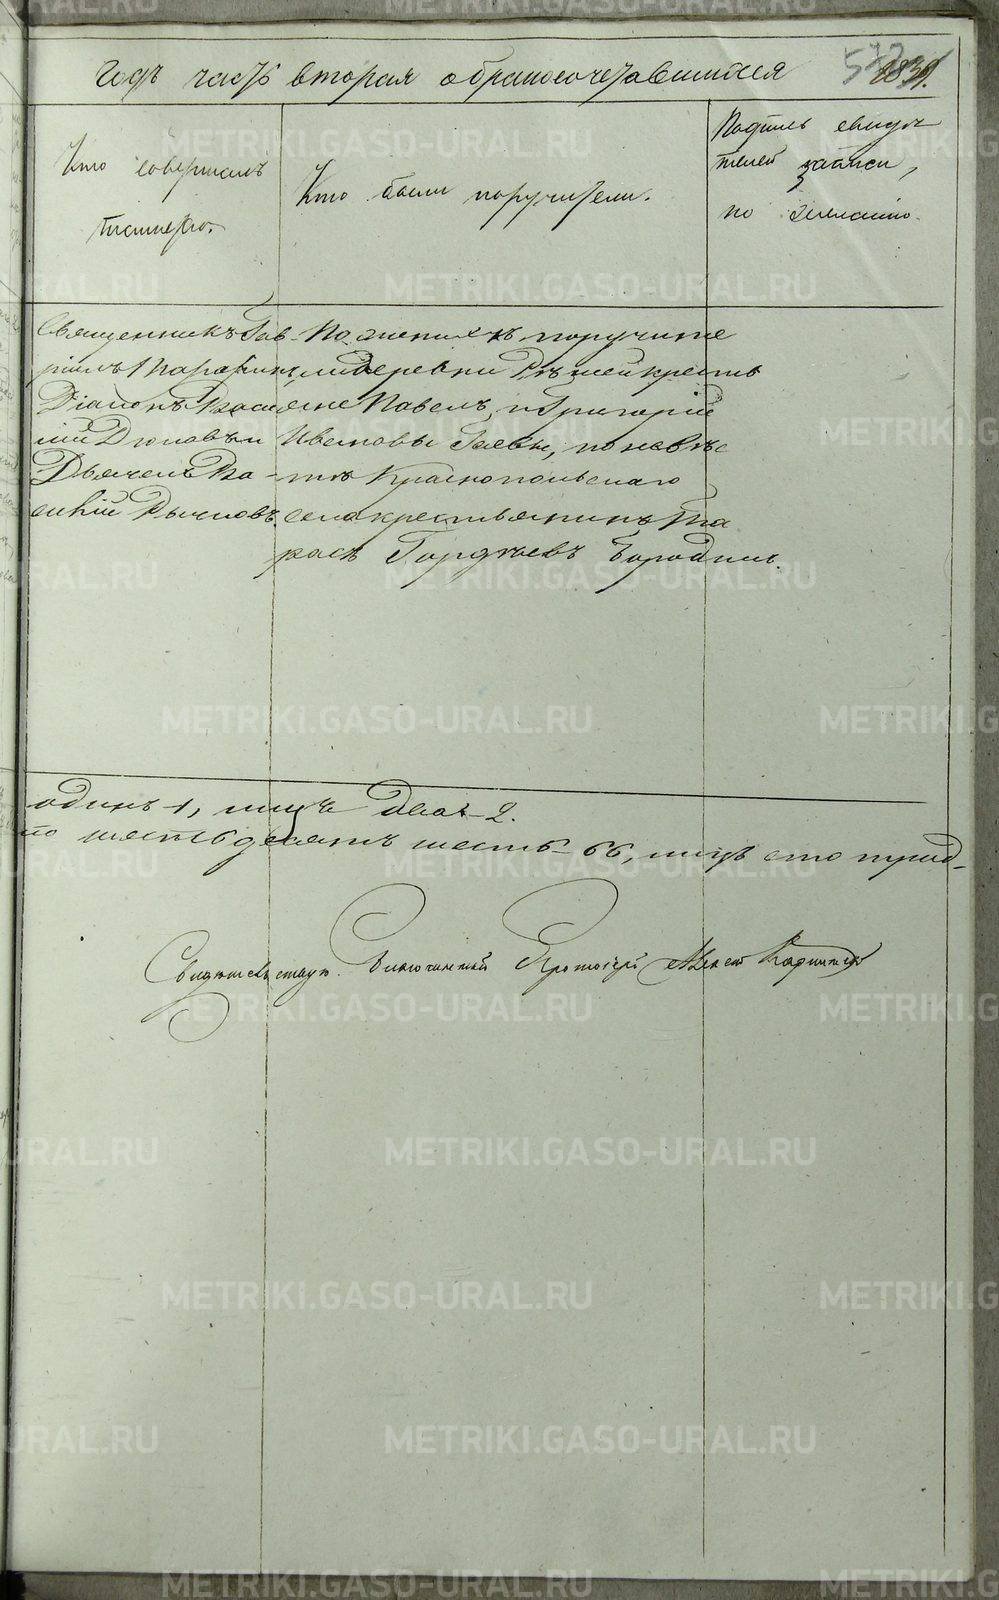 годъ часть вторая о бракосочетавшихся
Кто совершалъ
таинство.
Кто были поручители.
Подпись свидѣ
телей записи,
по желанію.
Священникъ Гав-
ріилъ Парышевъ,
Діаконъ Васи
лій Дюповъ и
Дьячекъ Ва-
силій Рычковъ.
По женихѣ поручите
ли деревни Рѣшей крестья
яне Павелъ, и Григорій
Ивановы Гаевы, по невѣс
тѣ Краснопольскаго
села крестьянинъ Та
расъ Гордѣевъ Бородинъ.
одинъ 1, лицъ два-2.
то шестьдесятъ шесть-66, лицъ сто трид-
Свидѣтельствую. Благочинный Протоіерей Алексѣй
METRIKI.GASO-URAL.RU